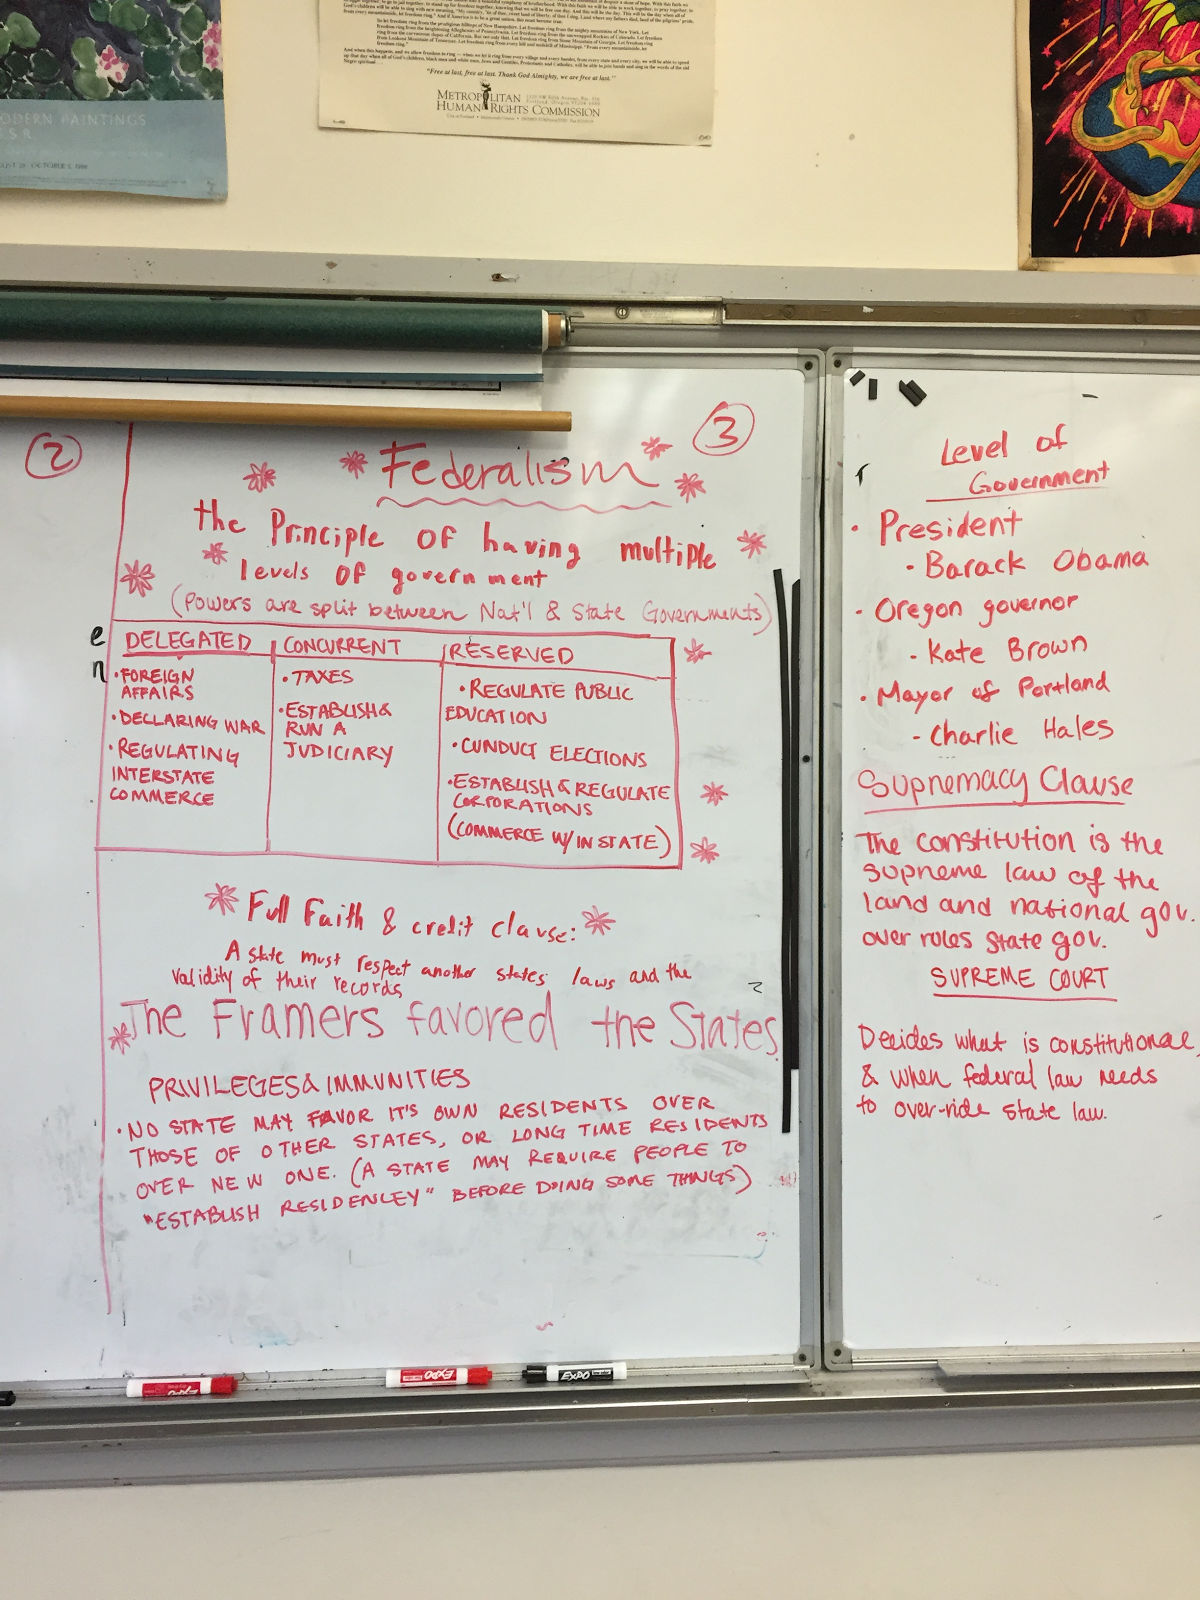 ODERN PAINTINGS
S.R.
OCTOBER 2,
up that day when all of God's children, black men and white men, Jews and Gentiles, Protestants and Catholics, will be able to join hands and sing in the words of the old
Negro spiritual . . .
"Free at last, free at last. Thank God Almighty, we are free at last."
METROPOLITAN
HUMAN RIGHTS COMMISSION
2
3
Federalism
the Principle of having multiple
levels of government
(Powers are split between Nat'l & State Governments)
e
n
DELEGATED
• FOREIGN
AFFAIRS
• DECLARING WAR
• REGULATING
INTERSTATE
COMMERCE
CONCURRENT
• TAXES
• ESTABLISH &
RUN A
JUDICIARY
RESERVED
• REGULATE PUBLIC
EDUCATION
• CUNDUCT ELECTIONS
• ESTABLISH & REGULATE
CORPORATIONS
(COMMERCE W/IN STATE)
Full Faith & credit clause:
A state must respect another states laws and the
validity of their records
The Framers favored the States
PRIVILEGES & IMMUNITIES
• NO STATE MAY FAVOR IT'S OWN RESIDENTS OVER
THOSE OF OTHER STATES, OR LONG TIME RESIDENTS
OVER NEW ONE. (A STATE MAY REQUIRE PEOPLE TO
"ESTABLISH RESIDENCEY" BEFORE DOING SOME THINGS)
Level of
Government
• President
• Barack Obama
• Oregon governor
- Kate Brown
• Mayor of Portland
- Charlie Hales
Supremacy Clause
The constitution is the
supreme law of the
land and national gov.
over rules state gov.
SUPREME COURT
Decides what is constitutional,
& when federal law needs
to over-ride state law.
EXPO
EXPO
EXPO